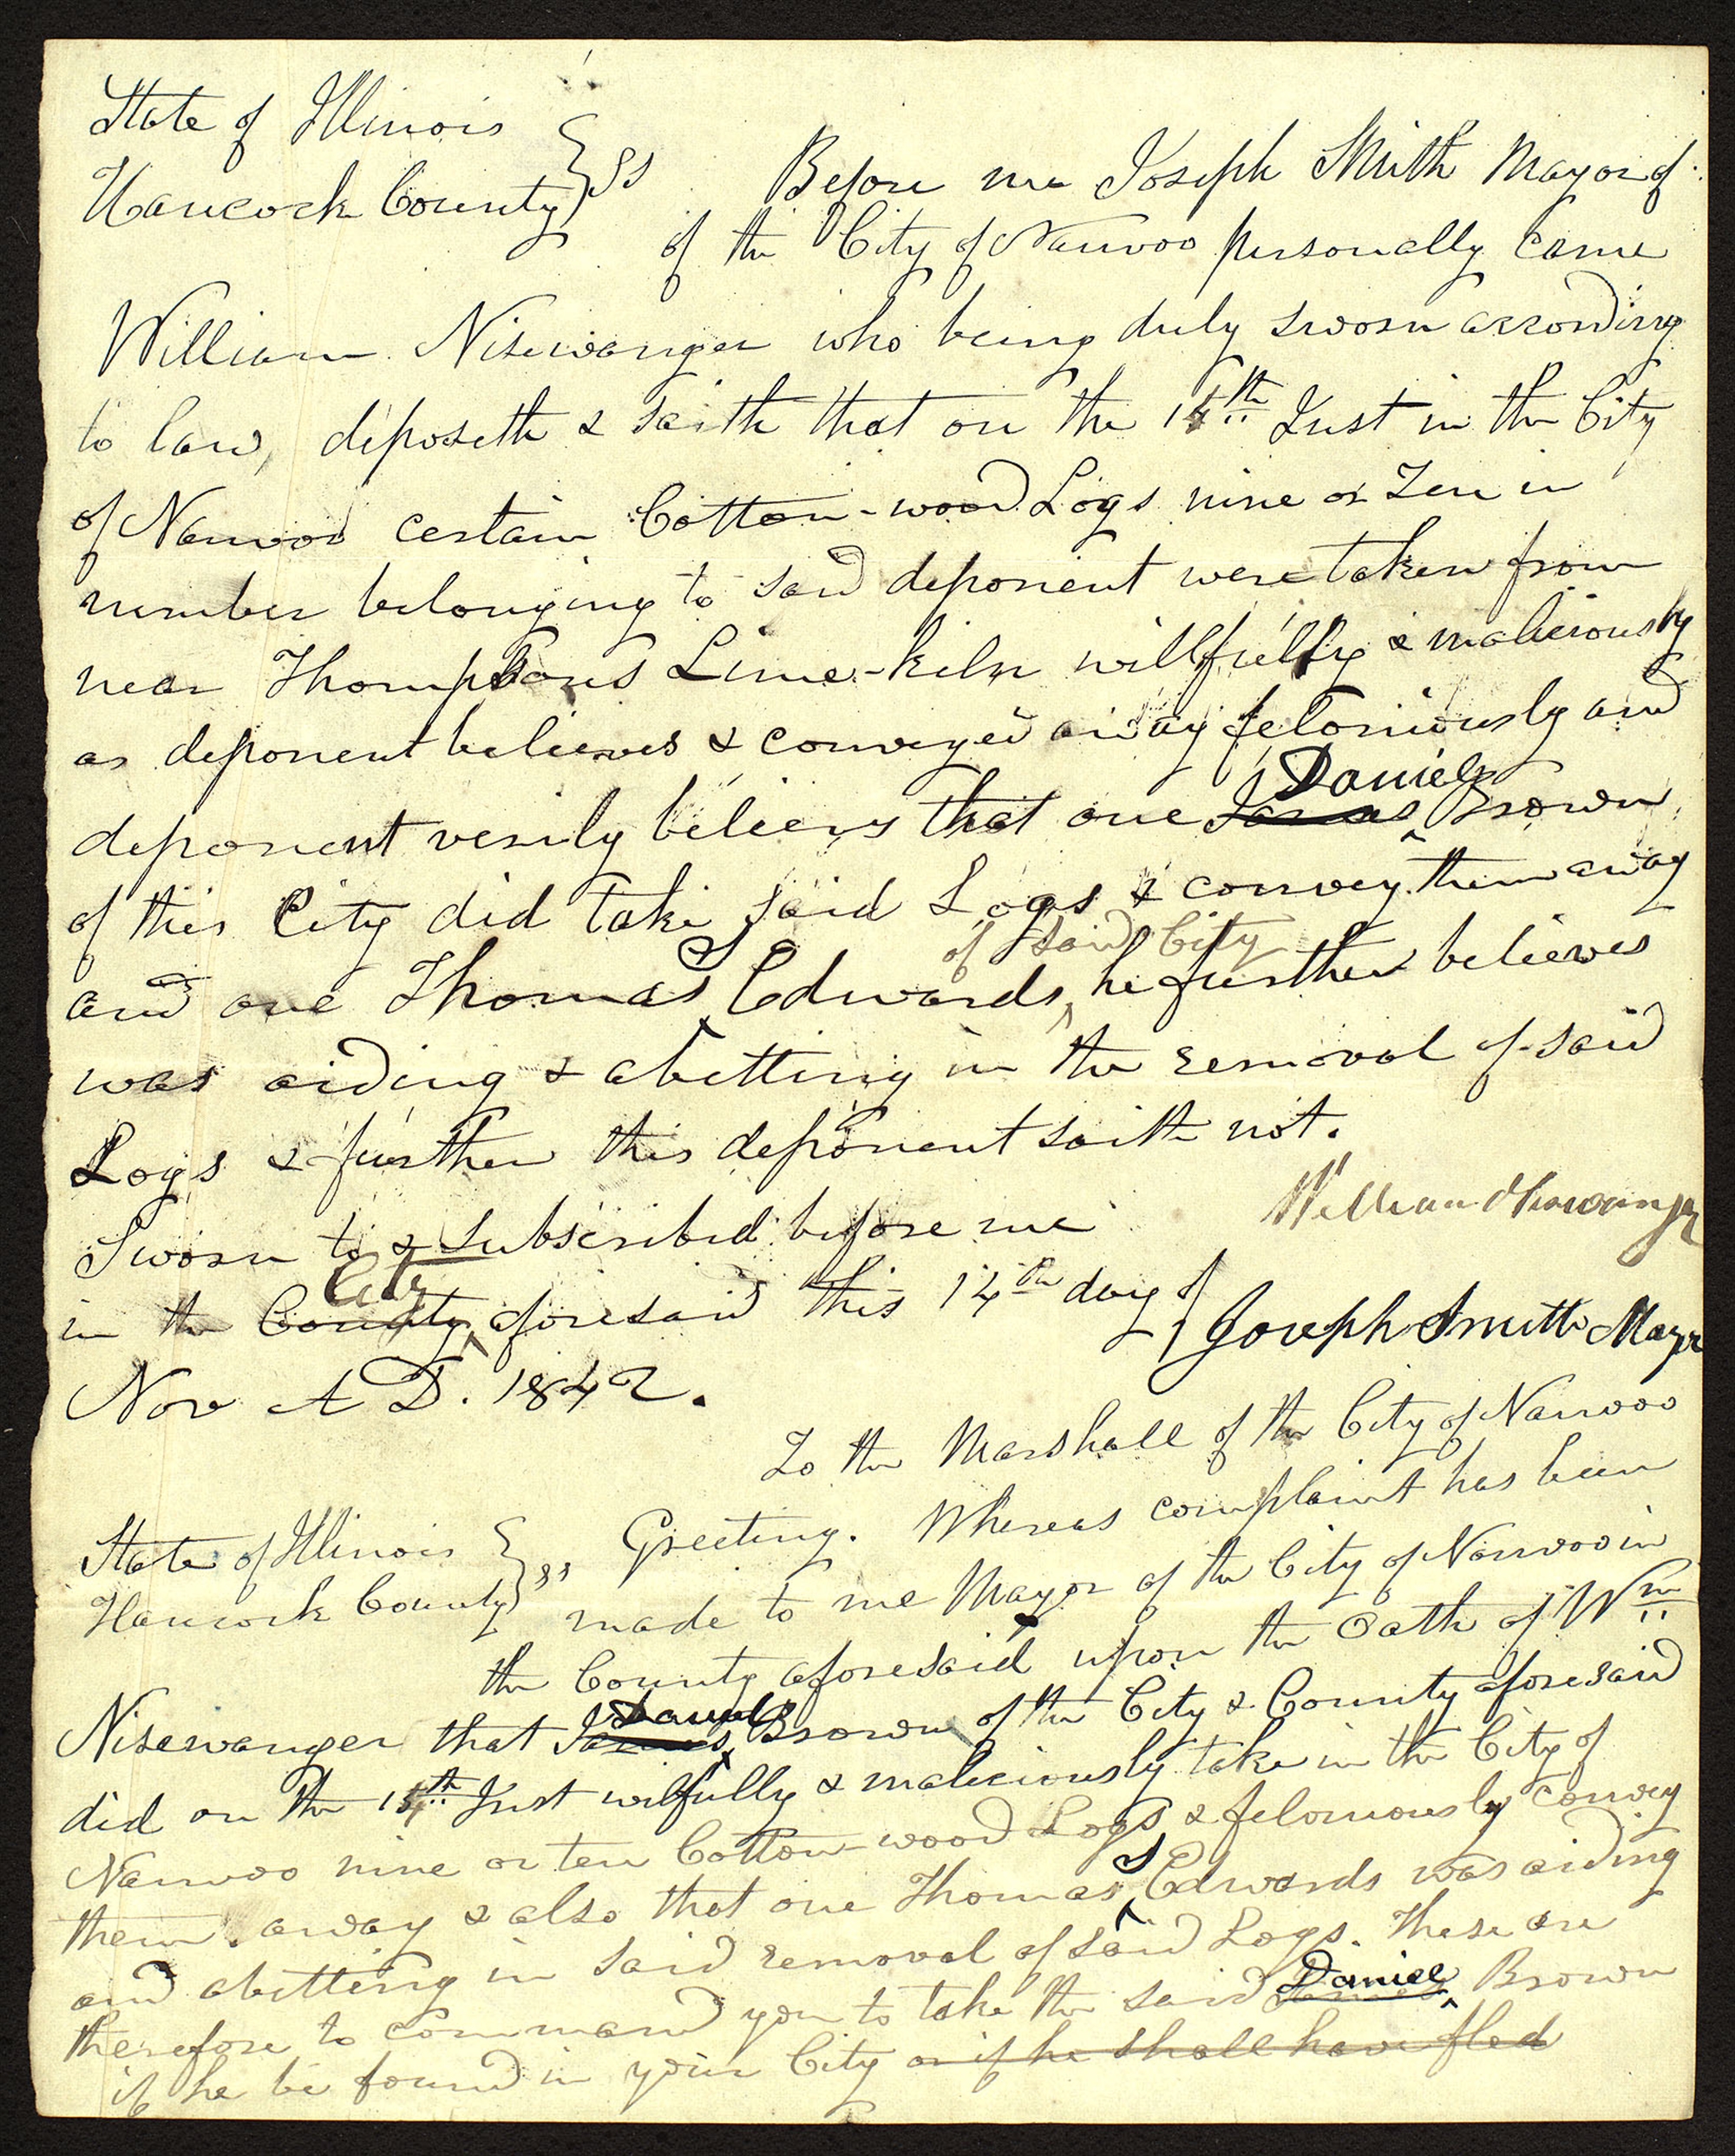 State of Illinois
Hancock County } ss Before me Joseph Smith Mayor of
of the City of Nauvoo personally came
William Nisewanger who being duly sworn according
to law, deposeth & saith that on the 14th Inst in the City
of Nauvoo certain Cotton-wood Logs nine or Ten in
number belonging to said deponent were taken from
near Thompsons Lime-kiln willfully & maliciously
as deponent believes & conveyed away feloniously and
Daniel
deponent verily believes that one James Brown
of this City did take said Logs & convey them away
S of said City
and one Thomas Edwards he further believes
was aiding & abetting in the removal of said
Logs & further this deponent saith not.
William Nisewanger
Sworn to & subscribed before me
City
in the County aforesaid this 14th day of
Joseph Smith Mayor
Nov A D. 1842.
To the Marshall of the City of Nauvoo
State of Illinois
Hancock County } ss Greeting. Whereas complaint has been
made to me Mayor of the City of Nauvoo in
the County aforesaid upon the Oath of Wm
Daniel
Nisewanger that James Brown of the City & County aforesaid
did on the 14th Inst wilfully & maliciously take in the City of
Nauvoo nine or ten Cotton-wood Logs & feloniously convey
S
them away & also that one Thomas Edwards was aiding
and abetting in said removal of said Logs. These are
Daniel
therefore to command you to take the said James Brown
if he be found in your City or if he shall have fled